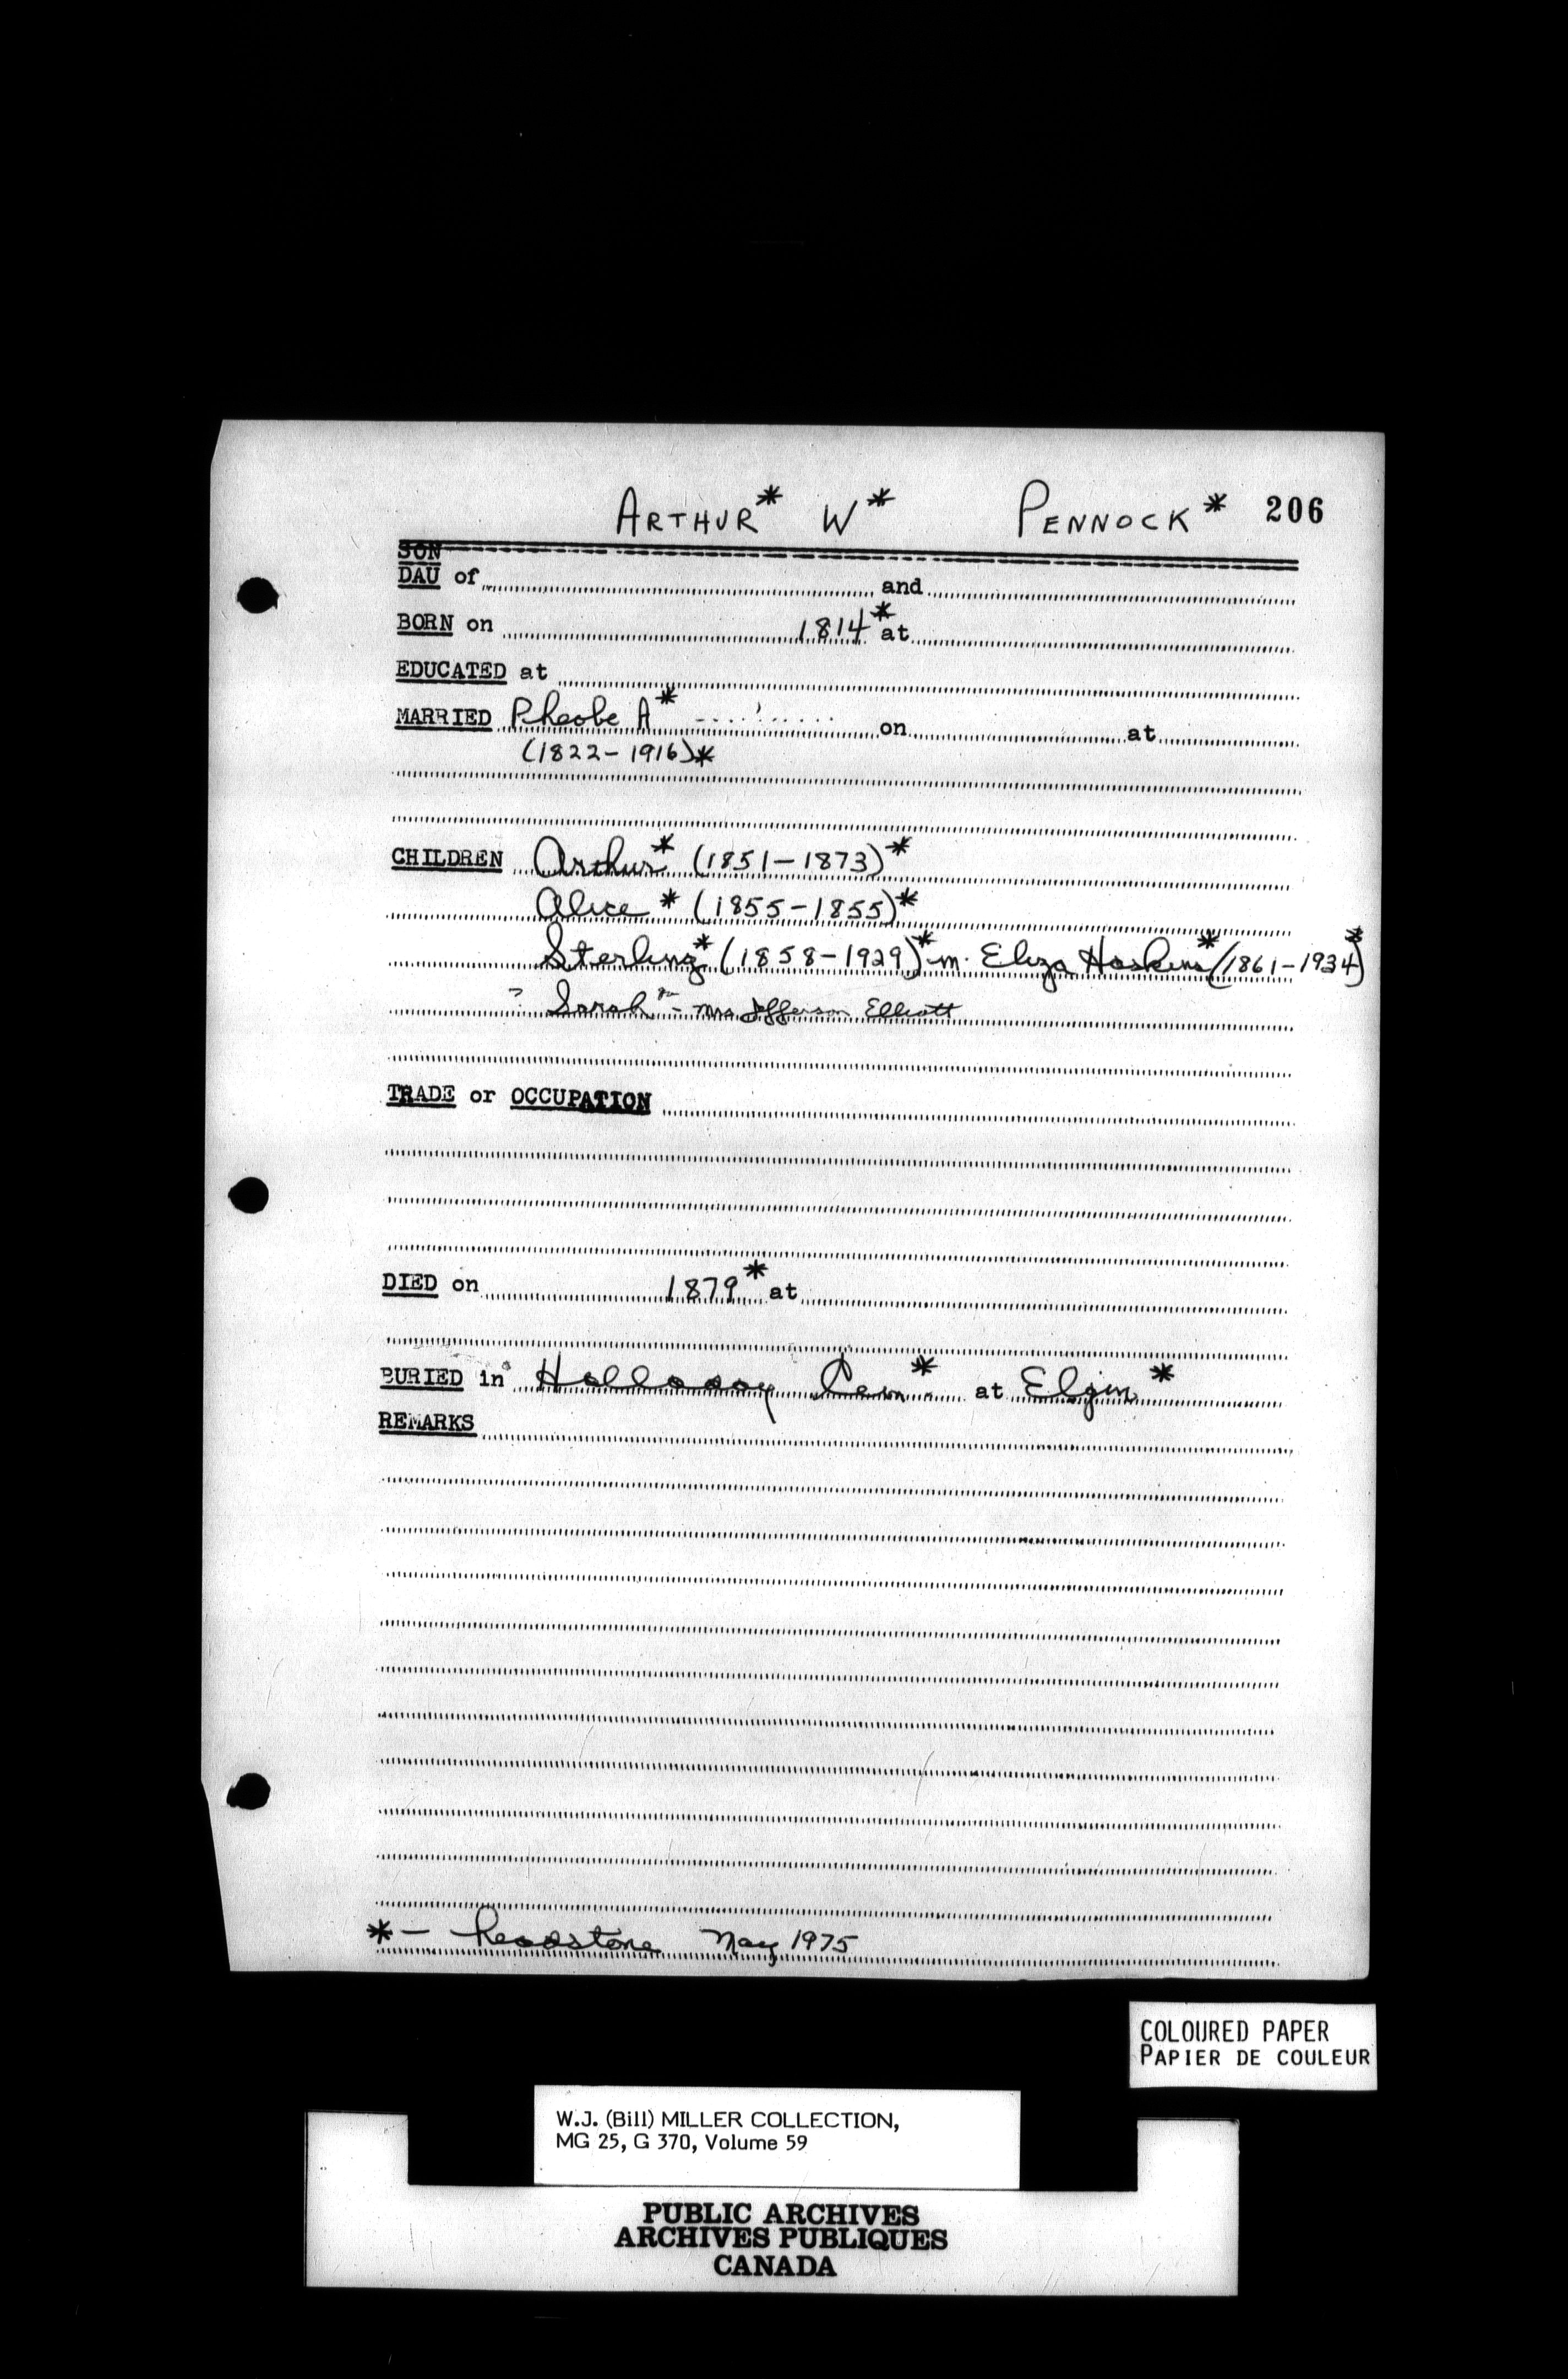 ARTHUR* W* PENNOCK* 206
SON
DAU of and
BORN on 1814* at
EDUCATED at
MARRIED Pheobe A* on at
(1822-1916)*
CHILDREN Arthur* (1851-1873)*
Alice* (1855-1855)*
Sterling* (1858-1929)* m. Eliza Haskins* (1861-1934)*
? Sarah - Mrs Jefferson Elliott
TRADE or OCCUPATION
DIED on 1879* at
BURIED in Halladay Cem* at Elgin*
REMARKS
* - headstone May 1975
COLOURED PAPER
PAPIER DE COULEUR
W.J. (Bill) MILLER COLLECTION,
MG 25, G 370, Volume 59
PUBLIC ARCHIVES
ARCHIVES PUBLIQUES
CANADA